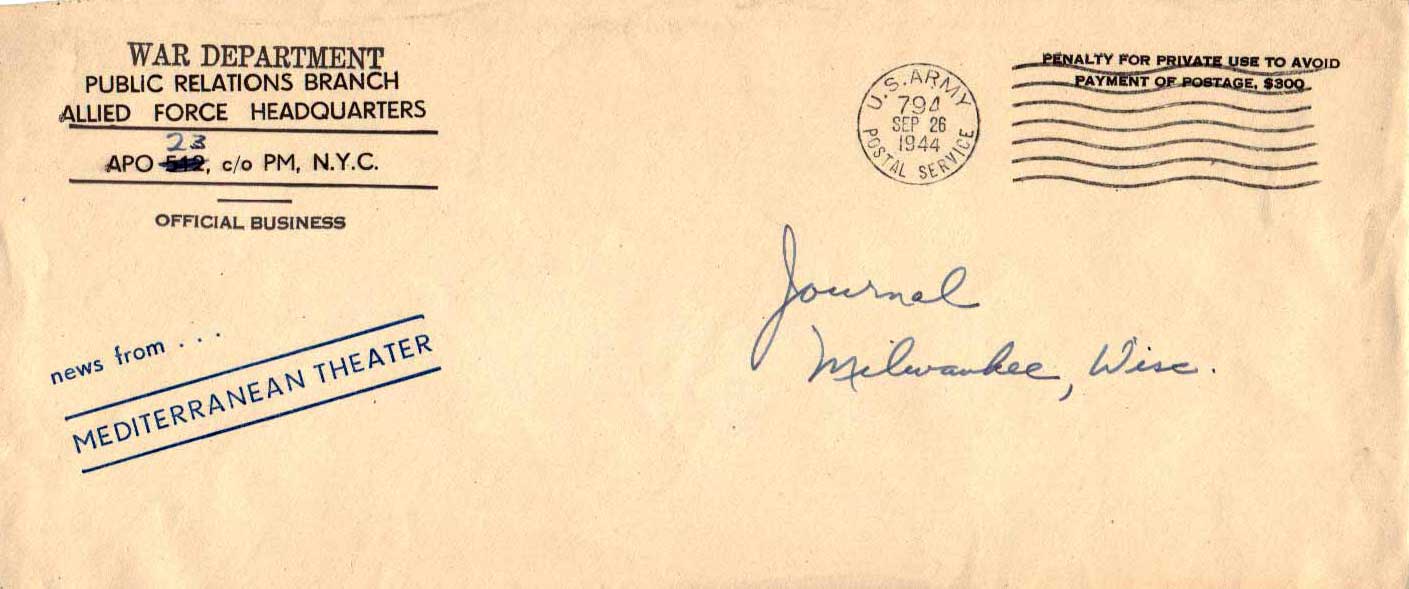 WAR DEPARTMENT
PUBLIC RELATIONS BRANCH
ALLIED FORCE HEADQUARTERS
23
APO 512, c/o PM, N.Y.C.
OFFICIAL BUSINESS
U.S. ARMY
794
SEP 26
1944
POSTAL SERVICE
PENALTY FOR PRIVATE USE TO AVOID
PAYMENT OF POSTAGE, $300
news from . . .
MEDITERRANEAN THEATER
Journal
Milwaukee, Wisc.